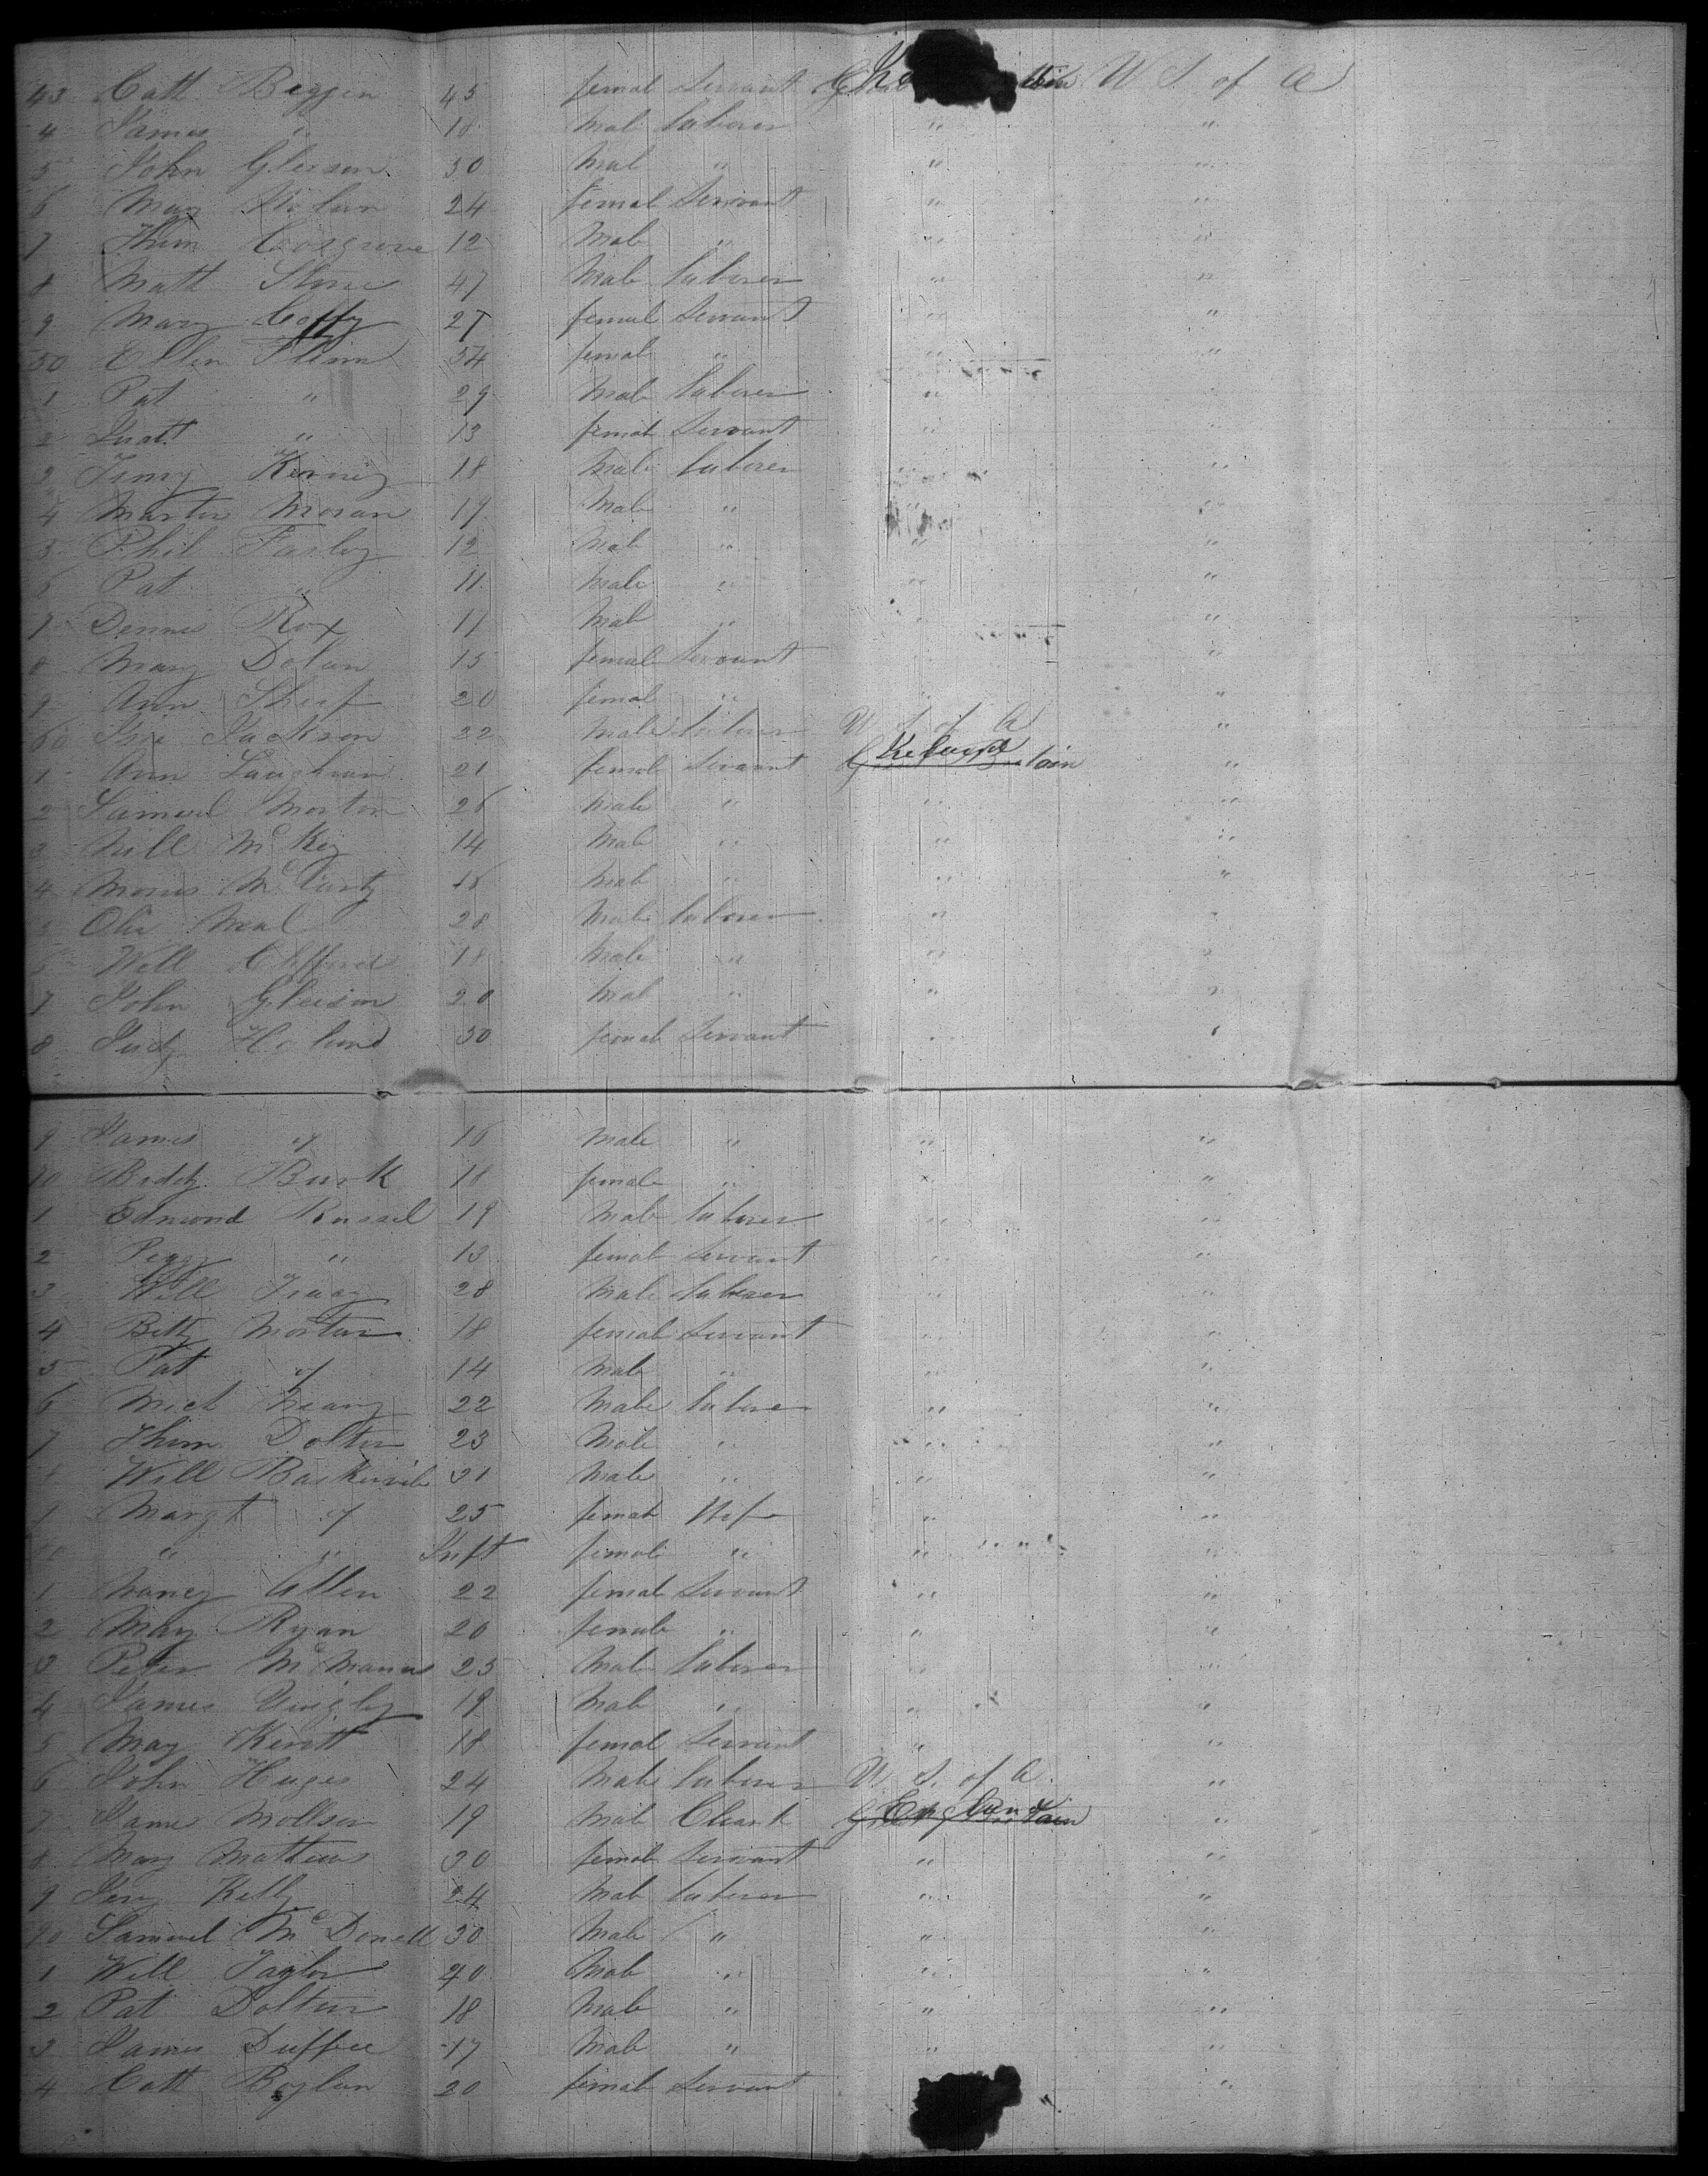 43 Catt Beggen 45 femal Servant W S of A
4 James " 18 Mal laborer " "
5 John Gleeson 30 Mal " " "
6 May 24 femal Servant " "
7 Thim Cosgrove 12 Male " " "
8 Matt Stone 47 Male laborer " "
9 Mary Coffy 27 femal Servant " "
50 Ellen Flinn 34 femal " " "
1 Pat " 29 Male laborer " "
2 " 13 femal Servant " "
3 18 Male laborer " "
4 Martin Moran 19 Male " " "
5 Phil Farley 12 Male " " "
6 Pat " 11 Male " "
7 Dennis Rox 11 Mal " "
8 Mary Dolan 15 femal Servant "
9 Ann 20 femal " " "
60 Jackson 22 Male laborer U S of A "
1 Ann Laughnan 21 femal Servant "
2 Samuel Morton 26 Male " " "
3 McKey 14 Male " " "
4 Morris McCarty 16 Male " " "
5 Neal 28 Male laborer " "
6 Will 18 Male " " "
7 John Gleeson 20 Mal " " "
8 Judy 30 femal Servant
9 James " 16 Male " " "
70 Biddy Burk 18 femal " " "
1 Edmond Russel 19 Male laborer " "
2 Peggy " 13 femal Servant " "
3 Will 28 Male laborer " "
4 Betty Morton 18 femal Servant " "
5 Pat " 14 Male " " "
6 Mich 22 Male laborer " "
7 Thim Dolten 23 Male " " "
8 Will Baskervile 31 Male " " "
9 Margt " 25 femal Wife " "
80 " " Inft femal " " "
1 Nancy Allen 22 femal Servant " "
2 May Ryan 20 female " " "
3 Peter McManus 25 Male laborer " "
4 James Quigley 19 Male " " "
5 May 18 femal Servant " "
6 John Huges 24 Male laborer U S. of A. "
7 James Mollson 19 Male Cleark England "
8 Mary Mathews 30 femal Servant " "
9 Kelly 24 Male laborer " "
90 Samuel McDonell 30 Male " " "
1 Will Taylor 40 Male " " "
2 Pat Dolten 18 Male " " "
3 James Duffee 17 Male " " "
4 Catt Boylan 20 femal Servant "